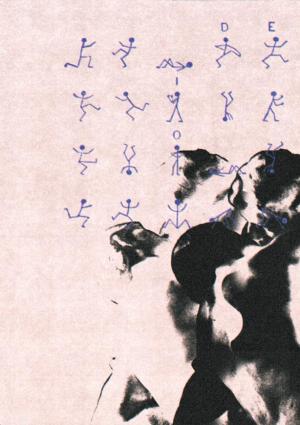 D E
I
O